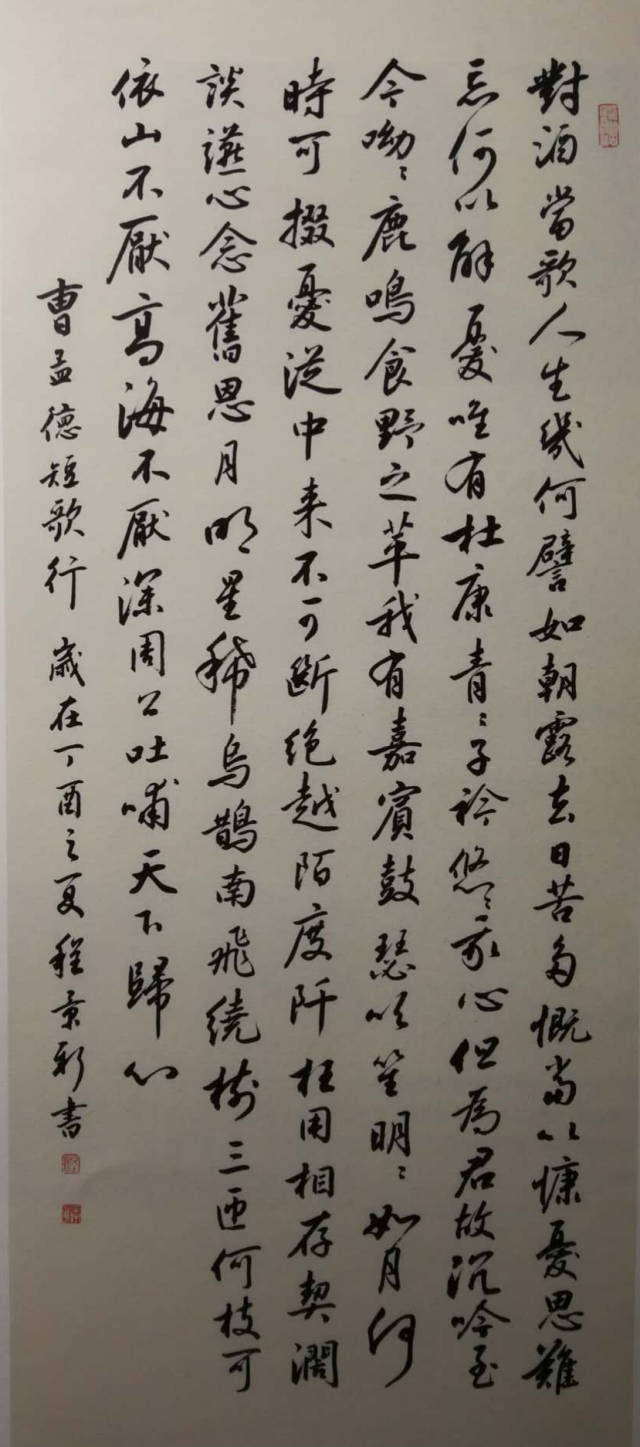 對酒當歌人生幾何譬如朝露去日苦多慨當以慷憂思難
忘何以解憂唯有杜康青〻子衿悠〻我心但為君故沉吟至
今呦〻鹿鳴食野之苹我有嘉賓鼓瑟吹笙明〻如月何
時可掇憂從中来不可斷绝越陌度阡枉用相存契濶
談讌心念舊恩月明星稀烏鵲南飛繞樹三匝何枝可
依山不厭高海不厭深周公吐哺天下歸心
曹孟德短歌行 歲在丁酉之夏程景新書